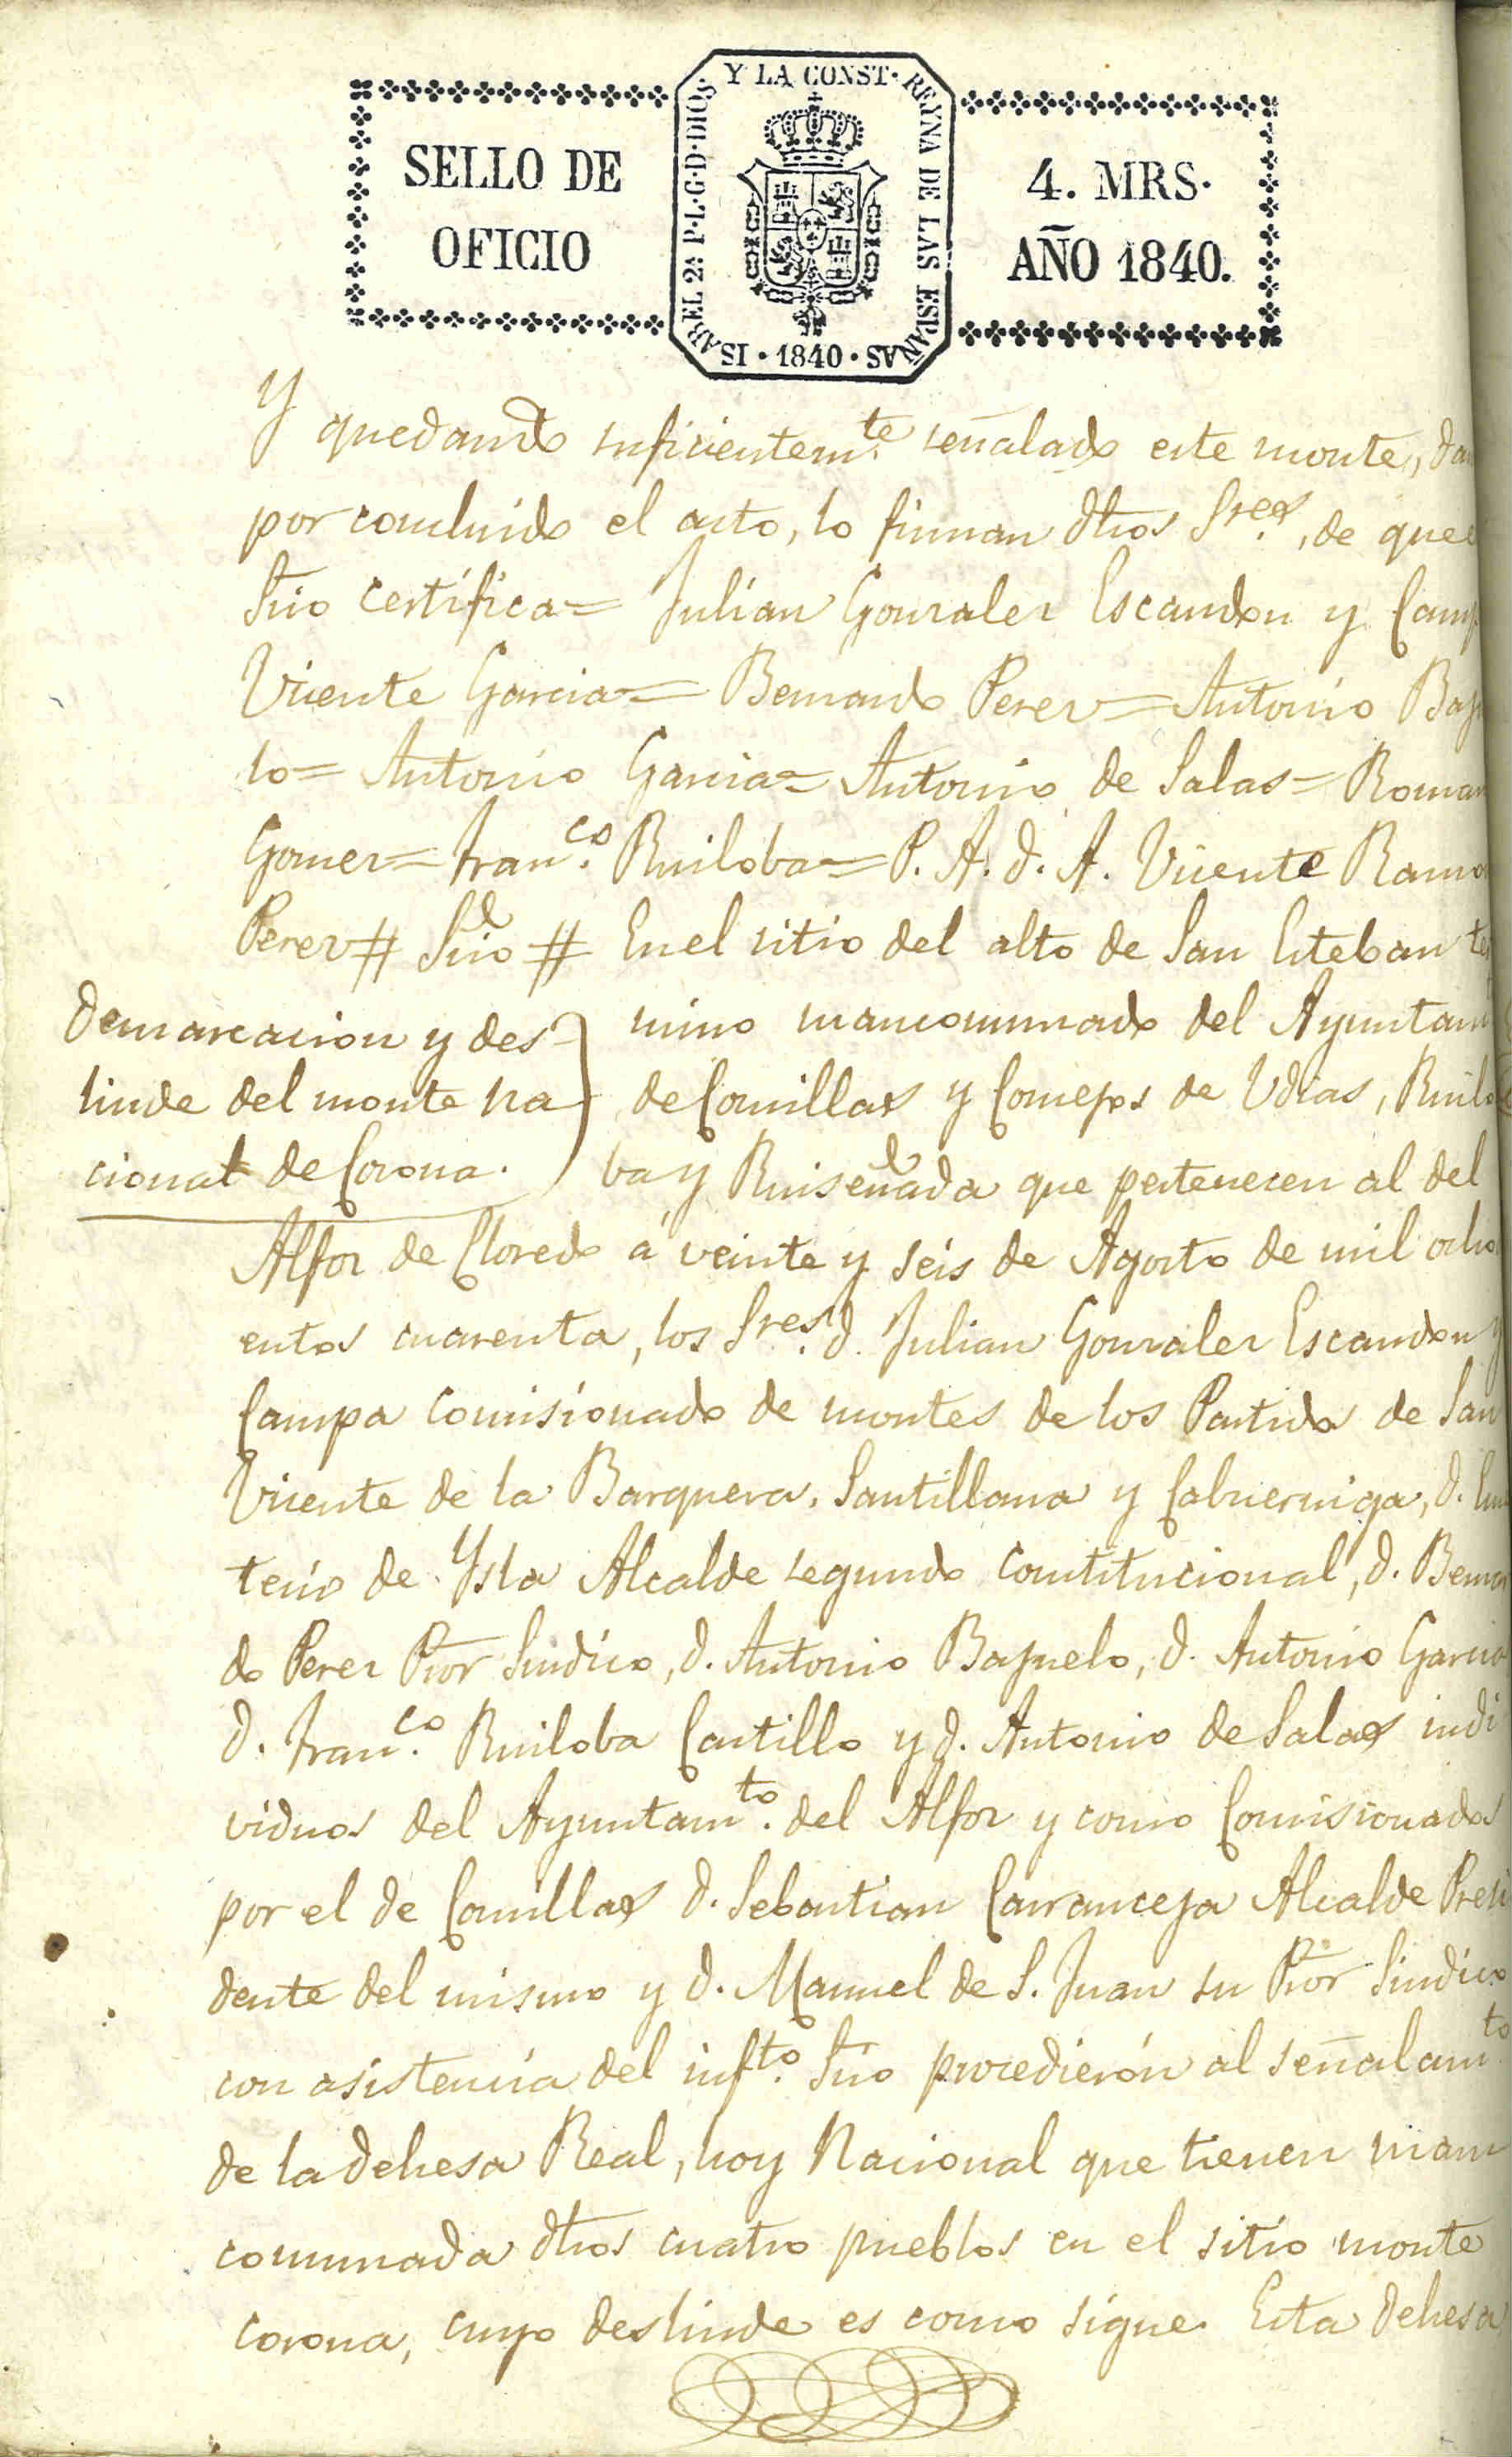 SELLO DE
OFICIO
ISABEL 2ª P.L.G.D.DIOS. Y LA CONST. REYNA DE LAS ESPAÑAS
· 1840 ·
4. MRS.
AÑO 1840.
Y quedando suficientem.te señalado este monte, dan
por concluido el acto, lo firman dhos Sres., de que
Srio certifica= Julian Gonzalez Escandon y Camp
Vicente Garcia= Bernardo Perez= Antonio Baju
lo= Antonio Garcia= Antonio de Salas= Roman
Gomez= Fran.co Ruiloba= P. A. d. A. Vicente Ramo
Perez # Srio # En el sitio del alto de San Esteban te
Demarcacion y des
linde del monte na
cional de Corona.
mino mancomunado del Ayuntam
de Comillas y Concejos de Udias, Ruilo
ba y Ruiseñada que pertenecen al del
Alfoz de Lloredo á veinte y seis de Agosto de mil ocho
entos cuarenta, los Sres. d. Julian Gonzalez Escandon y
Campa comisionado de montes de los Partidos de San
Vicente de la Barquera, Santillana y Cabuerniga, d.
terio de Ysla Alcalde segundo constitucional, d. Bernar
do Perez Pror Sindico, d. Antonio Bajuelo, d. Antonio Garcia
d. Fran.co Ruiloba Castillo y d. Antonio de Salas indi
viduos del Ayuntam.to del Alfoz y como Comisionados
por el de Comillas d. Sebastian Carranceja Alcalde Presi
dente del mismo y d. Manuel de S. Juan su Pror Sindico
con asistencia del inf.to Srio procedierón al señalam.to
de la dehesa Real, hoy Nacional que tienen man
comunada dhos cuatro pueblos en el sitio monte
corona, cuyo deslinde es como sigue. Esta dehesa